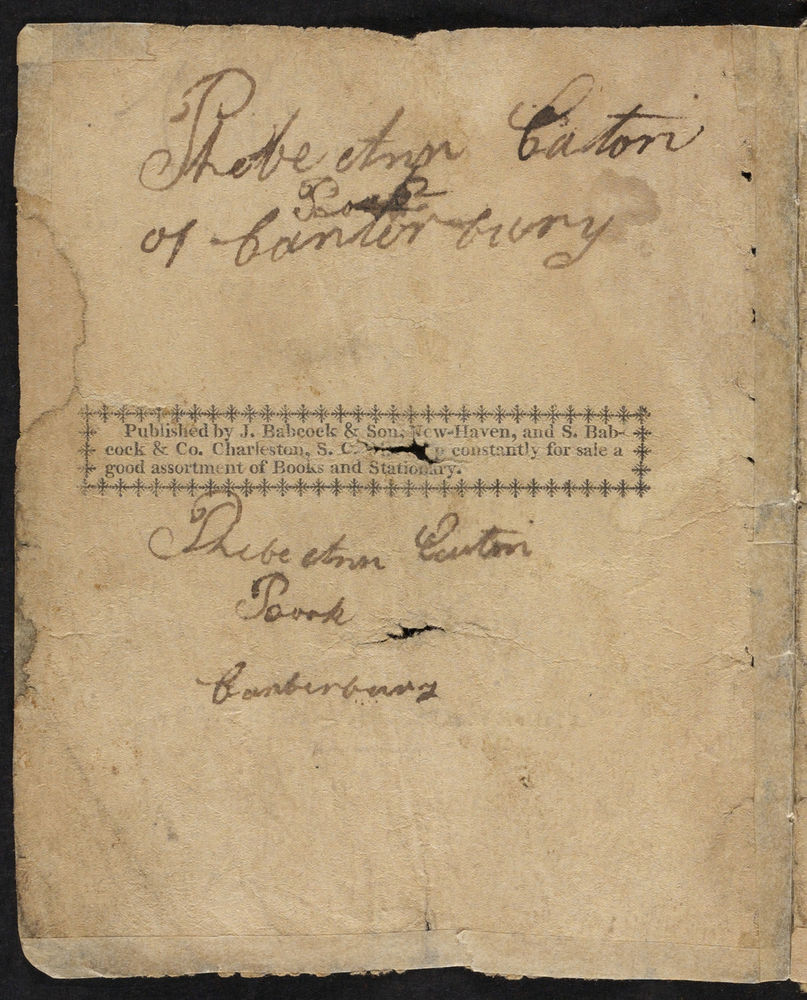 Phebe Ann Eaton
Book
of Canterbury
Published by J. Babcock & Son, New-Haven, and S. Bab-
cock & Co. Charleston, S. C. constantly for sale a
good assortment of Books and Stationary.
Phebe Ann Eaton
Book
Canterbury